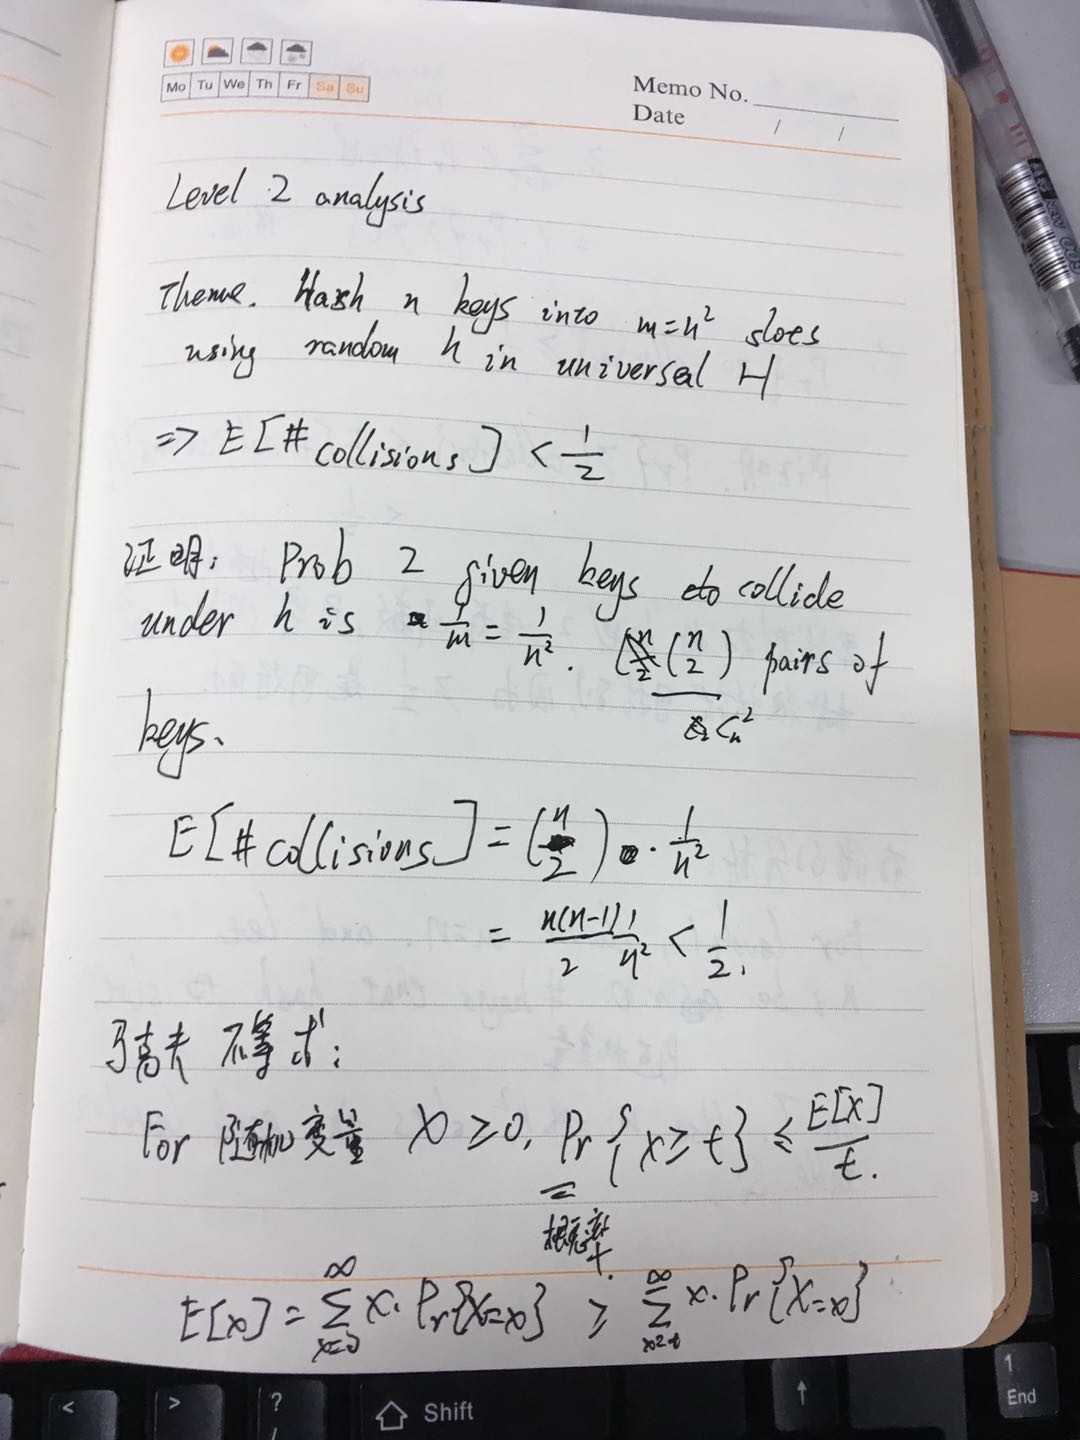 Mo Tu We Th Fr Sa Su
Memo No.
Date / /
Level 2 analysis
Theme. Hash n keys into m=n² sloes
using random h in universal H
=> E[# collisions] < 1/2
证明: Prob 2 given keys to collide
under h is 1/m = 1/n². (n 2) pairs of
C_n^2
keys.
E[# collisions] = (n 2) · 1/n²
= n(n-1)/2 1/n² < 1/2.
马高夫 不等式:
For 随机变量 X ≥ 0, Pr{x ≥ t} ≤ E[x]/t.
概率
E[x] = ∑_{x=0}^∞ x. Pr{X=x} ≥ ∑_{x=t}^∞ x. Pr{X=x}
< > ? /
Shift
↑
1
End